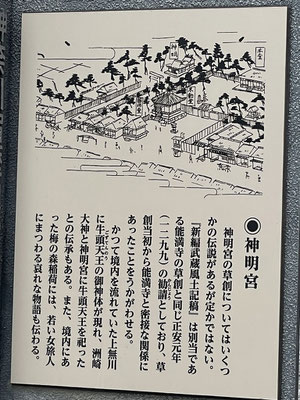 ◉神明宮
神明宮の草創についてはいくつ
かの伝説があるが定かではない。
『新編武蔵風土記稿』は別当であ
る能満寺の草創と同じ正安元年
(一二九九)の勧請としており、草
創当初から能満寺と密接な関係に
あったことをうかがわせる。
かつて境内を流れていた上無川
に牛頭天王の御神体が現れ、洲崎
大神と神明宮に牛頭天王を祀った
との伝承もある。また、境内にあ
った梅の森稲荷には、若い女旅人
にまつわる哀れな物語も伝わる。